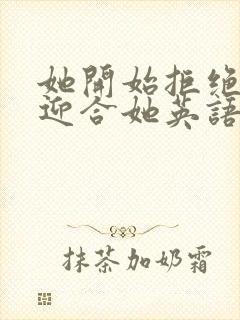 她開始拒绝
迎合她英語
抹茶加奶霜